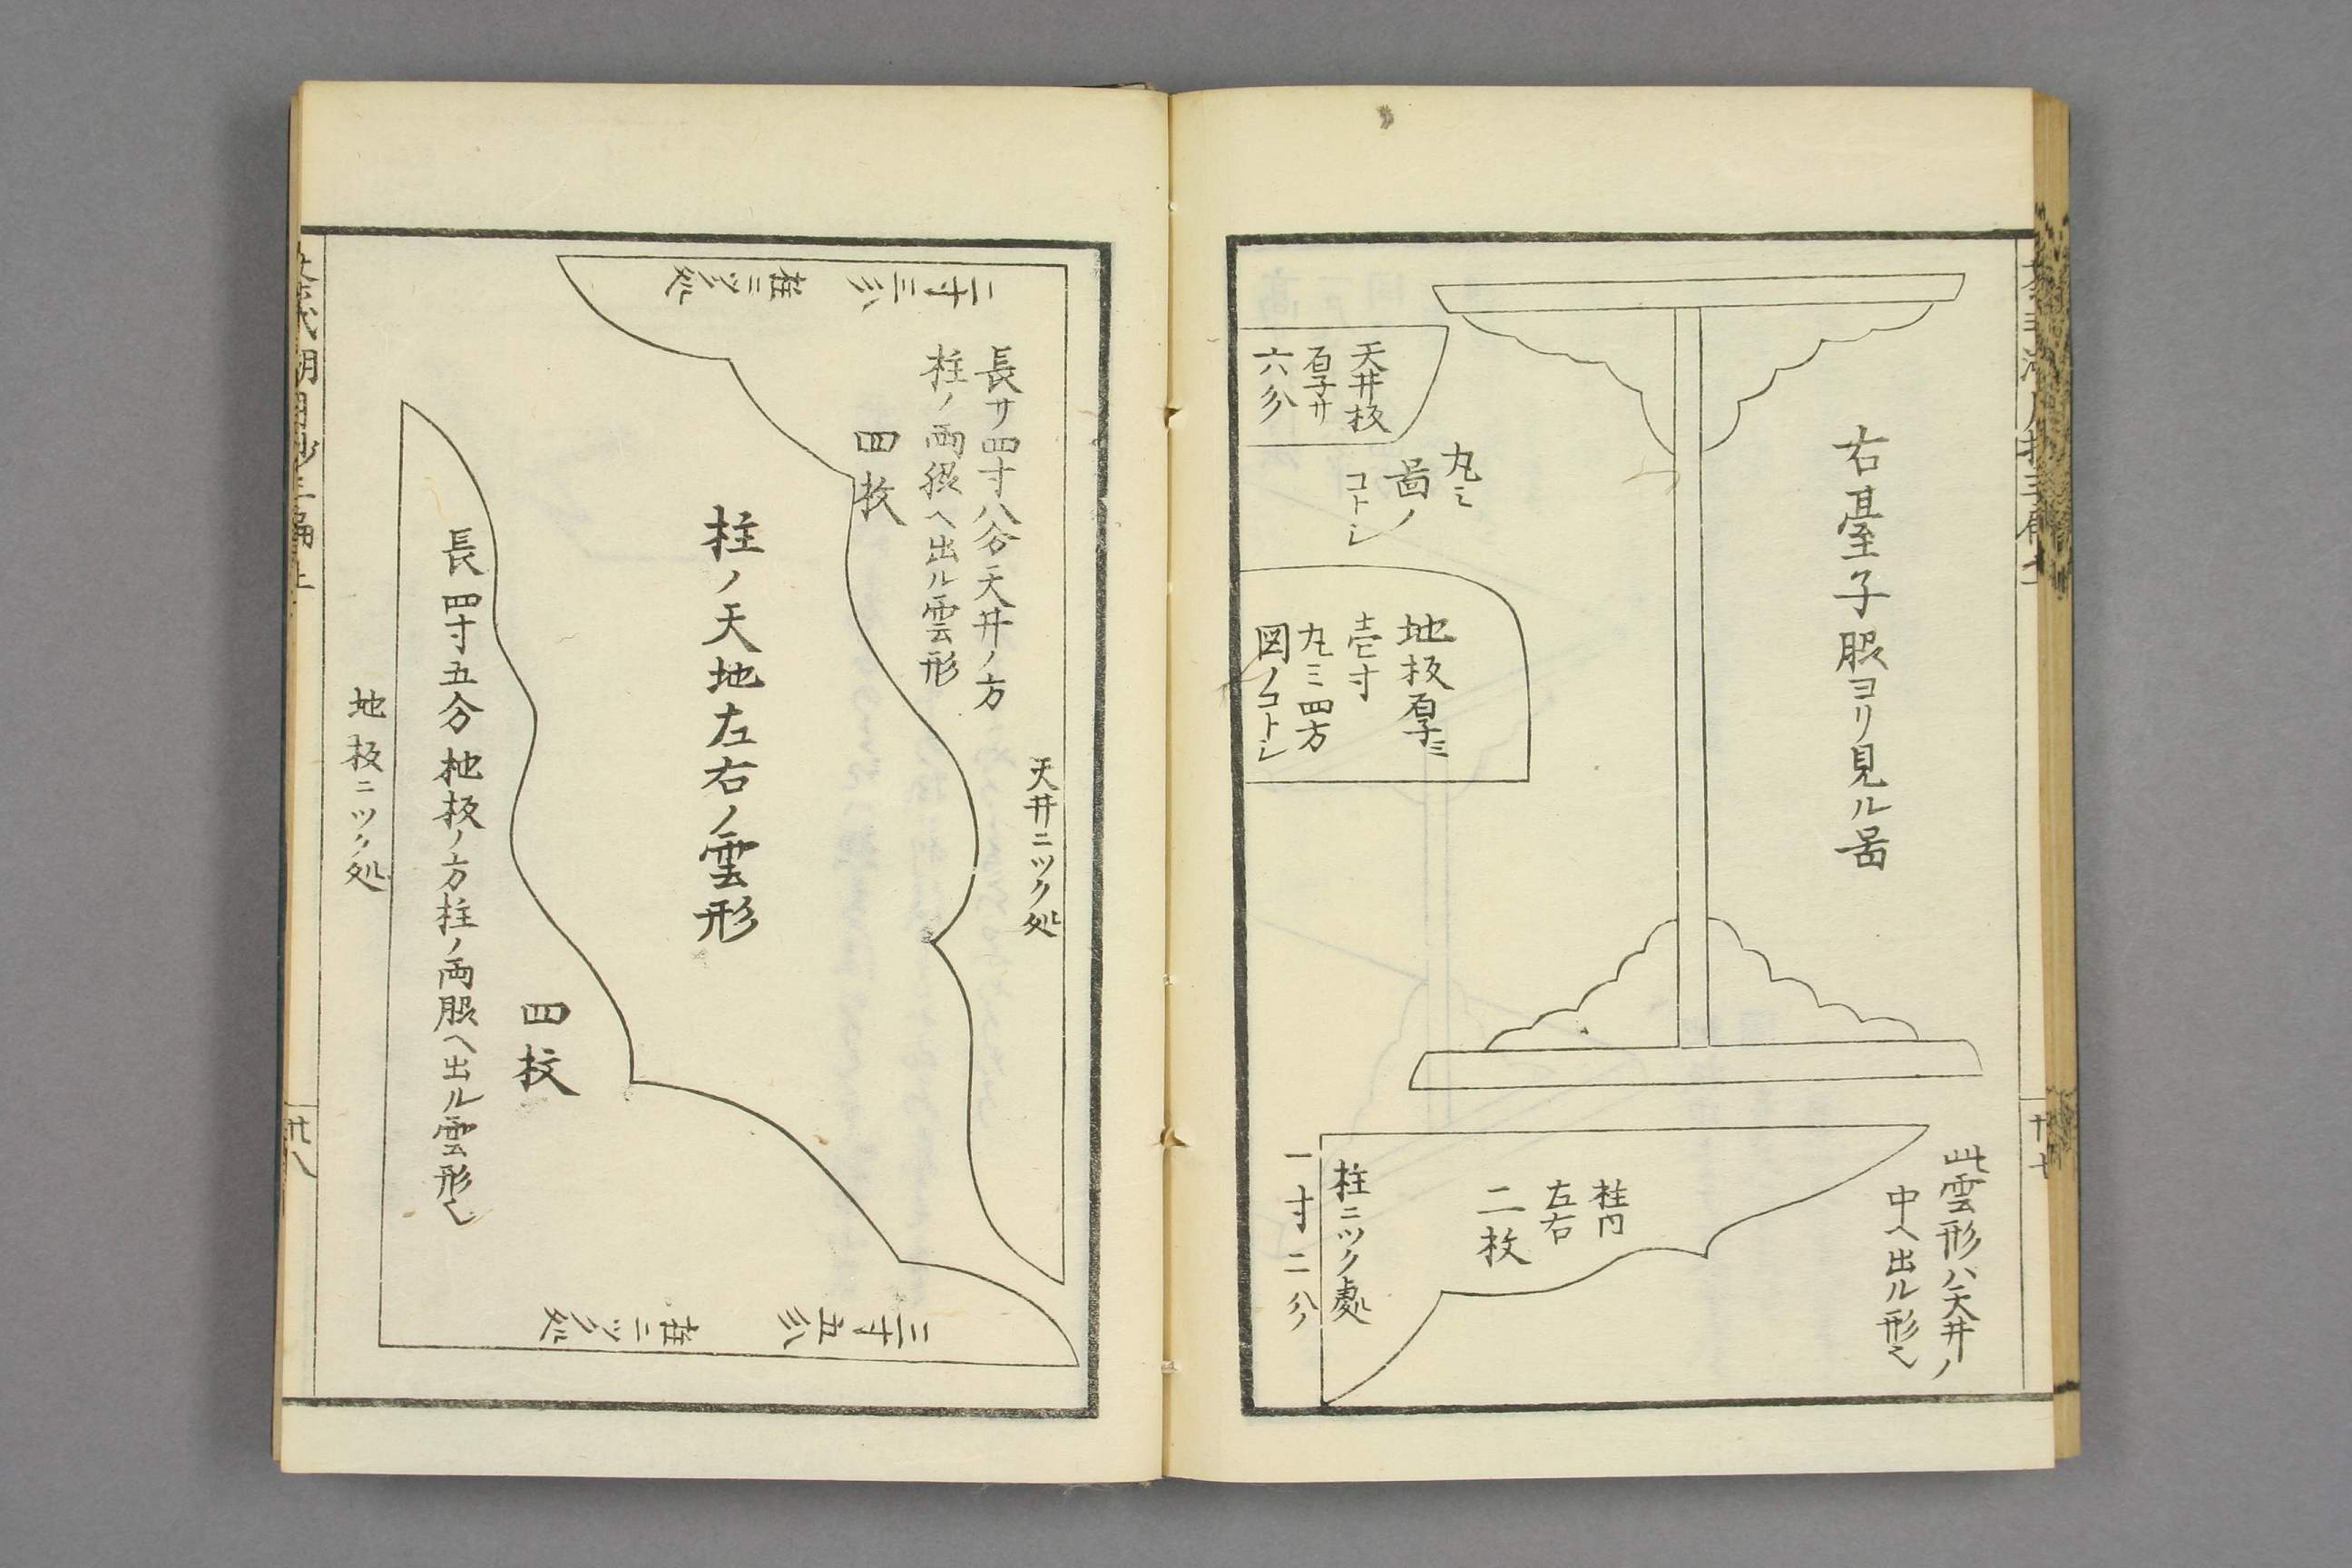 右臺子脇ヨリ見ル啚
天井板
厚サ
六分
丸ミ
啚ノ
コトシ
地板厚ミ
壱寸
丸ミ四方
図ノコトシ
此雲形ハ天井ノ
中ヘ出ル形也
柱内
左右
二枚
柱ニツク處
一寸二分
天井ニツク処
長サ四寸八分天井ノ方
柱ノ両脇ヘ出ル雲形
四枚
二寸三分
柱ニツク処
柱ノ天地左右ノ雲形
四枚
長四寸五分地板ノ方柱ノ両脇ヘ出ル雲形也
三寸五分
柱ニツク処
地板ニツク処
廿八